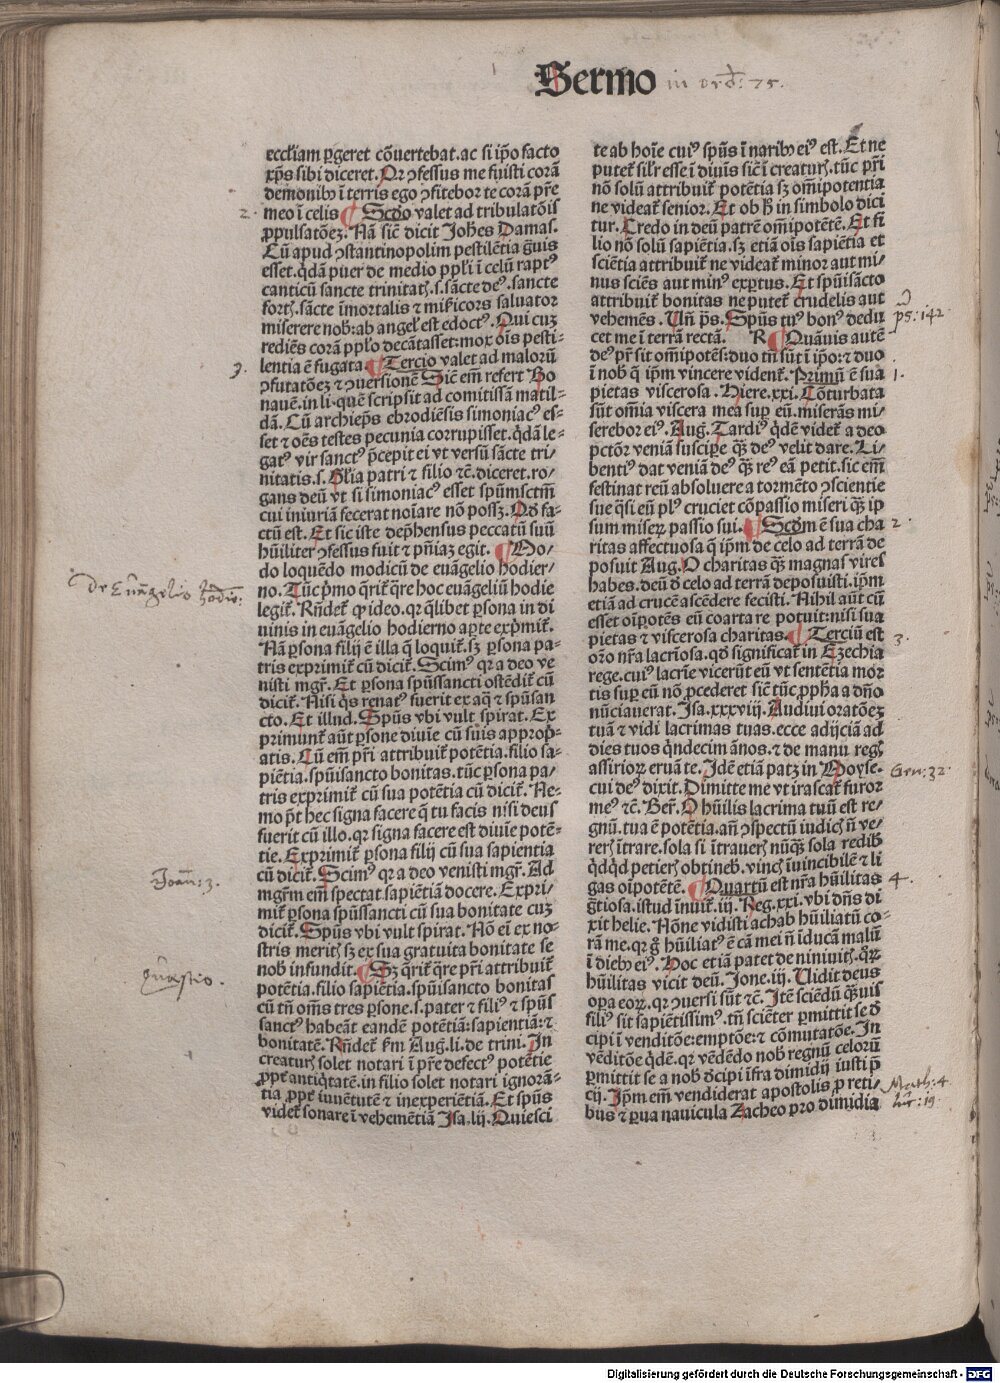 Sermo in ord: 75.
eccłiam ꝑgeret cõuertebat. ac si ip̃o facto
xp̃s sibi diceret. Qr ↄfessus me fuisti corã
demonibꝰ ĩ terris ego ↄfitebor te corã pr̃e
2. meo ĩ celis ¶ Scd̃o valet ad tribulatõis
ꝓpulsatõeꝫ. Nã sic̃ dicit Joh̃es Damas.
Cũ apud ↄstantinopolim pestilẽtia g̃uis
esset. q̃dã puer de medio pp̃li ĩ celũ raptꝰ
canticũ sancte trinitatꝭ. s. sãcte deꝰ. sancte
fortꝭ. sãcte ĩmortalis ⁊ mĩicors saluator
miserere nob̃: ab angeł est edoctꝰ. Qui cuꝫ
rediẽs corã pp̃lo decãtasset: mox oĩs pesti⸗
3. lentia ẽ fugata. ¶ Tercio valet ad malorũ
ↄfutatõeꝫ ⁊ ↄuersionẽ Sic̃ em̃ refert Bo
nauẽ. in li. quẽ scripsit ad comitissã matil⸗
dã. Cũ archiep̃s ebrodiẽsis simoniacꝰ es⸗
set ⁊ oẽs testes pecunia corrupisset. q̃dã le⸗
gatꝰ vir sanctꝰ p̃cepit ei vt versũ sãcte tri⸗
nitatis. s. Gl̃ia patri ⁊ filio ⁊c̃. diceret. ro⸗
gans deũ vt si simoniacꝰ esset spũmsctm̃
cui iniuriã fecerat noĩare nõ possꝫ. Qd̃ fa⸗
ctũ est. Et sic iste dep̃hensus peccatũ suũ
hũiliter ↄfessus fuit ⁊ pñiaꝫ egit. ¶ Mo⸗
do loquẽdo modicũ de euãgelio hodier⸗
De Euãngelio hodie: no. Tũc p̃mo q̃rit̃ q̃re hoc euãgeliũ hodie
legit̃. Rñdet̃ ꝙ ideo. qꝛ q̃libet ꝑsona in di
uinis in euãgelio hodierno aꝑte exp̃mit̃.
Nã ꝑsona filij ẽ illa q̃ loquit̃. sꝫ ꝑsona pa⸗
tris exprimit̃ cũ dicit̃. Scimꝰ qꝛ a deo ve
nisti mgr̃. Et ꝑsona spũssancti ostẽdit̃ cũ
dicit̃. Nisi q̃s renatꝰ fuerit ex aq̃ ⁊ spũsan
cto. Et illud. Spũs vbi vult spirat. Ex
primunt̃ aũt ꝑsone diuĩe cũ suis approp̃⸗
atis. Cũ em̃ pr̃i attribuit̃ potẽtia. filio sa⸗
piẽtia. spũisancto bonitas. tũc ꝑsona pa⸗
tris exprimit̃ cũ sua potẽtia cũ dicit̃. Ne⸗
mo p̃t hec signa facere q̃ tu facis nisi deus
fuerit cũ illo. qꝛ signa facere est diuĩe potẽ⸗
tie. Exprimit̃ ꝑsona filij cũ sua sapientia
Joañ: 3. cũ dicit̃. Scimꝰ qꝛ a deo venisti mgr̃. Ad
mgr̃m em̃ spectat sapiẽtiã docere. Expri⸗
mit̃ ꝑsona spũssancti cũ sua bonitate cuꝫ
dicit̃. Spũs vbi vult spirat. Nõ eĩ ex no⸗
stris meritꝭ sꝫ ex sua gratuita bonitate se
Quæstio. nob̃ infundit. ¶ Sꝫ q̃rit̃ q̃re pr̃i attribuit̃
potẽtia. filio sapiẽtia. spũisancto bonitas
cũ tñ oẽs tres ꝑsone. s. pater ⁊ filiꝰ ⁊ spũs
sanctꝰ habeãt eandẽ potẽtiã: sapientiã: ⁊
bonitatẽ. Rñdet̃ ẜm Aug̃. li. de trini. In
creaturꝭ solet notari ĩ pr̃e defectꝰ potẽtie
ꝓpt̃ antiq̃tatẽ. in filio solet notari ignorã⸗
tia ꝓpt̃ iuuẽtutẽ ⁊ inexperiẽtiã. Et spũs
videt̃ sonare ĩ vehemẽtiã Jsa. lij. Quiesci
te ab hoĩe cuiꝰ spũs ĩ naribꝰ eiꝰ est. Et ne
putet̃ sil̃r esse ĩ diuĩs sic̃ ĩ creaturꝭ. tũc pr̃i
nõ solũ attribuit̃ potẽtia sꝫ om̃ipotentia
ne videat̃ senior. Et ob h̃ in simbolo dici
tur. Credo in deũ patrẽ om̃ipotẽtẽ. Et fi⸗
lio nõ solũ sapiẽtia. sꝫ etiã oĩs sapiẽtia et
sciẽtia attribuit̃ ne videat̃ minor aut mi⸗
nus sciẽs aut minꝰ exꝑtus. Et spũisãcto
attribuit̃ bonitas ne putet̃ crudelis aut
vehemẽs. Uñ p̃s. Spũs tuꝰ bonꝰ dedu ps: 142.
cet me ĩ terrã rectã. R ¶ Quãuis autẽ
deꝰ pr̃ sit om̃ipotẽs: duo tñ sũt ĩ ip̃o: ⁊ duo
ĩ nob̃ q̃ ip̃m vincere vident̃. Primũ ẽ sua 1.
pietas viscerosa. Hiere. xxi. Cõturbata
sũt om̃ia viscera mea suꝑ eũ. miserãs mi⸗
serebor eiꝰ. Aug̃. Tardiꝰ q̃dẽ videt̃ a deo
pctõr veniã suscipe q̃ꝫ deꝰ velit dare. Li⸗
bentiꝰ dat veniã deꝰ q̃ꝫ reꝰ eã petit. sic em̃
festinat reũ absoluere a tormẽto ↄscientie
sue q̃si eũ plꝰ cruciet cõpassio miseri q̃ꝫ ip
sum miseꝝ passio sui. ¶ Scd̃m ẽ sua cha 2.
ritas affectuosa q̃ ip̃m de celo ad terrã de
posuit Aug̃. O charitas q̃ꝫ magnas vires
habes. deũ d̃ celo ad terrã deposuisti. ip̃m
etiã ad crucẽ ascẽdere fecisti. Nihil aũt cũ
esset oĩpotẽs eũ coartare potuit: nisi sua
pietas ⁊ viscerosa charitas. ¶ Terciũ est 3.
or̃o nr̃a lacrĩosa. qd̃ significat̃ in Ezechia
rege. cuiꝰ lacrĩe vicerũt eũ vt sentẽtia mor
tis suꝑ eũ nõ ꝓcederet sic̃ tũc ꝓph̃a a dño
nũciauerat. Jsa. xxxviij. Audiui oratõeꝫ
tuã ⁊ vidi lacrimas tuas. ecce adijciã ad
dies tuos q̃ndecim ãnos. ⁊ de manu regꝭ
assirioꝝ eruã te. Jdẽ etiã patꝫ in Moyse. Gen: 32.
cui deꝰ dixit. Dimitte me vt irascat̃ furor
meꝰ ⁊c̃. Ber̃. O hũilis lacrima tuũ est re⸗
gnũ. tua ẽ potẽtia. añ ↄspectũ iudicꝭ ñ ve⸗
rerꝭ ĩtrare. sola si ĩtrauerꝭ nũq̃ꝫ sola redib̃
q̃dq̃d petierꝭ obtineb̃. vincꝭ ĩuincibilẽ ⁊ li
gas oĩpotẽtẽ. ¶ Quartũ est nr̃a hũilitas 4.
g̃tiosa. istud ĩnuit̃. iij. Reg. xxi. vbi dñs di
xit helie. Nõne vidisti achab hũiliatũ co⸗
rã me. qꝛ g̃ hũiliatꝰ ẽ cã mei ñ ĩducã malũ
ĩ diebꝰ eiꝰ. Hoc etiã patet de niniuitꝭ. qꝝ
hũilitas vicit deũ. Jone. iij. Uidit deus
oꝑa eoꝝ. qꝛ ↄuersi sũt ⁊c̃. Jtẽ sciẽdũ q̃ꝫuis
filiꝰ sit sapiẽtissimꝰ. tñ sciẽter ꝑmittit se d̃
cipi ĩ venditõe: emptõe: ⁊ cõmutatõe. In
vẽditõe q̃dẽ. qꝛ vẽdẽdo nob̃ regnũ celorũ
ꝑmittit se a nob̃ d̃cipi ĩfra dimidij iusti p̃
cij. Jp̃m em̃ vendiderat apostolis ꝓ reti⸗ Math: 4.
bus ⁊ ꝑua nauicula Zacheo pro dimidia luc: 19.
Digitalisierung gefördert durch die Deutsche Forschungsgemeinschaft - DFG